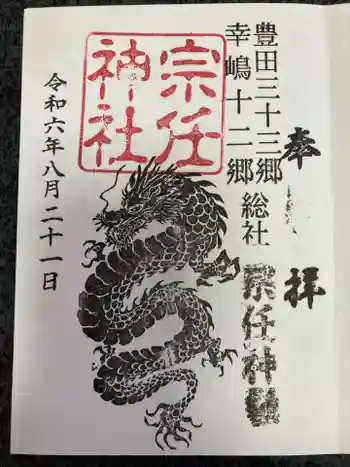 奉拝
豊田三十三郷
幸嶋十二郷
総社
宗任神社
宗任
神社
令和六年八月二十一日